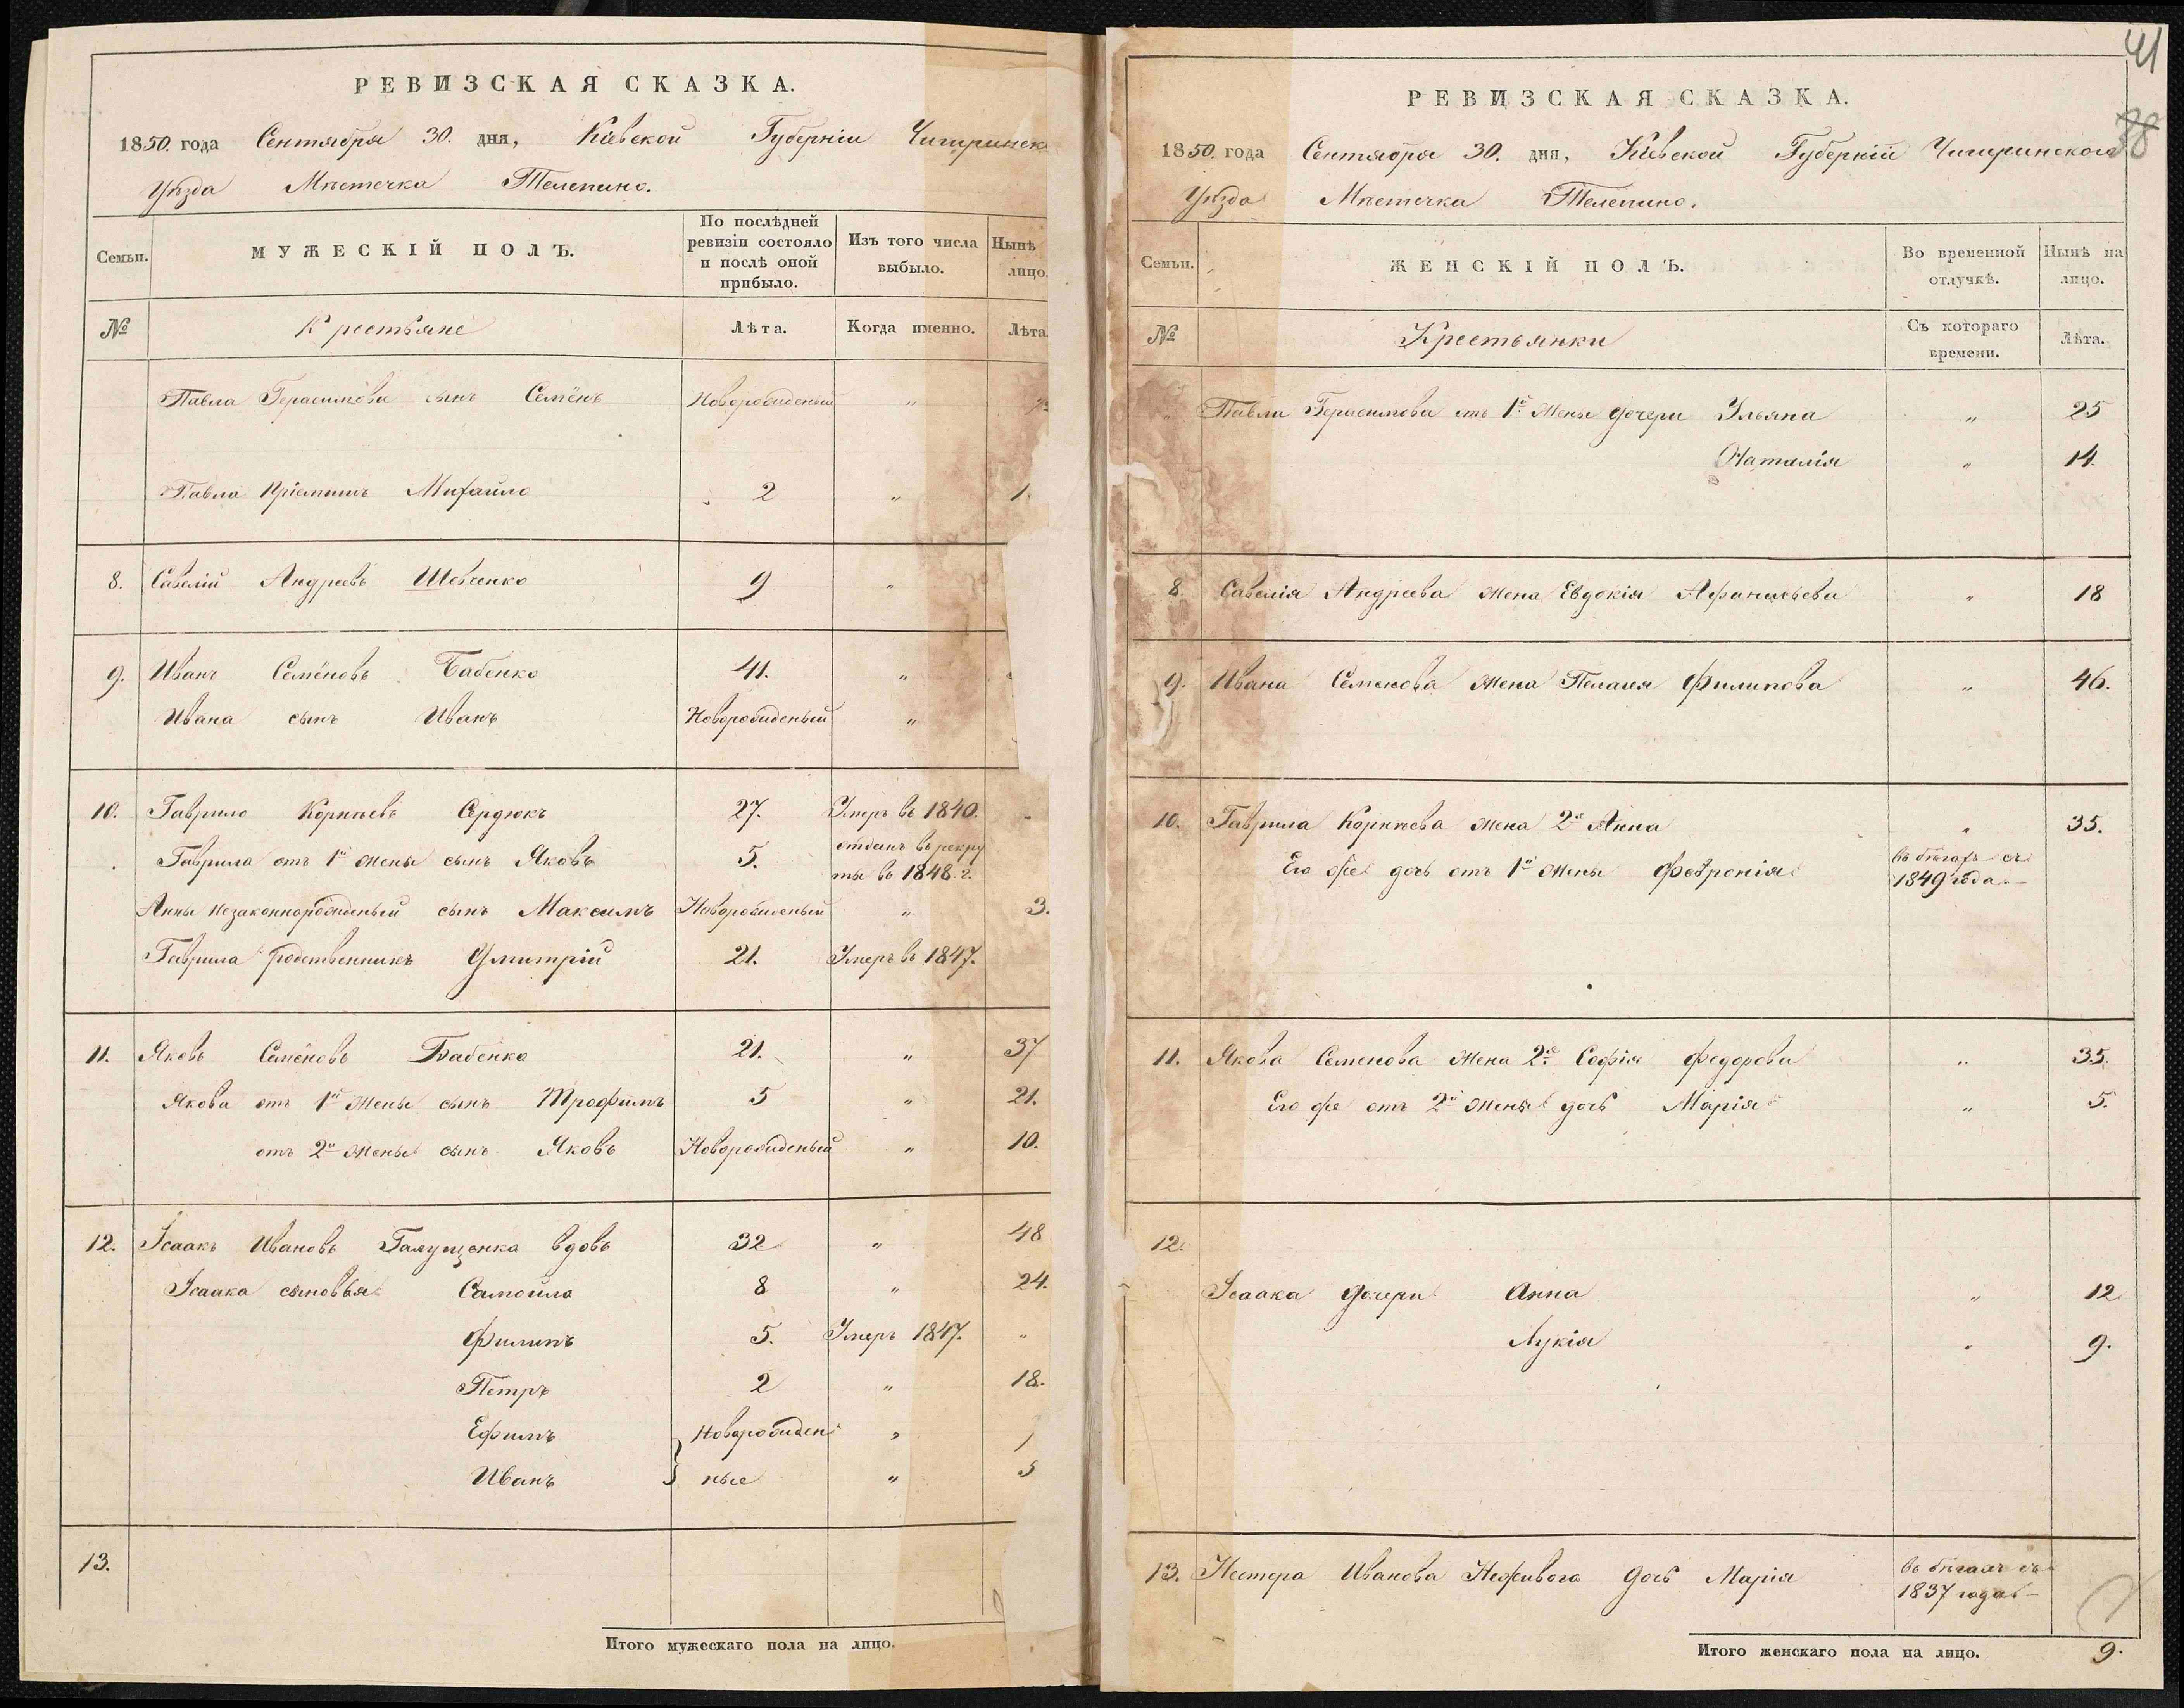 РЕВИЗСКАЯ СКАЗКА.
1850. года Сентября 30. дня, Кіевской Губерніи Чигиринск
Уѣзда Мѣстечка Телепино.
Семьи.
МУЖЕСКІЙ ПОЛЪ.
По послѣдней ревизіи состояло и послѣ оной прибыло.
Изъ того числа выбыло.
Нынѣ лицо.
№
Крестьяне
Лѣта.
Когда именно.
Лѣта.
Павла Герасимова сынъ Семёнъ Новорожденый "
Павла Пріемышъ Михайло 2 " 1
8. Савелій Андреевъ Шевченко 9 "
9. Иванъ Семёновъ Бабенко 41. "
Ивана сынъ Иванъ Новорожденый "
10. Гаврило Корнѣевъ Сердюкъ 27. Умеръ въ 1840. "
Гаврила отъ 1й жены сынъ Яковъ 5. отданъ въ рекру
ты въ 1848. г.
Анны незаконнорожденый сынъ Максимъ Новорожденый " 3.
Гаврила родственникъ Дмитрій 21. Умеръ въ 1847.
11. Яковъ Семёновъ Бабенко 21. " 37
Якова отъ 1й жены сынъ Трофимъ 5 " 21.
отъ 2й жены сынъ Яковъ Новорожденый " 10.
12. Исаакъ Ивановъ Галущенка вдовъ 32 " 48
Исаака сыновья Самойла 8 " 24.
Филипъ 5. Умеръ 1847. "
Петръ 2 " 18.
Ефимъ Новорожден "
Иванъ ные " 5
13.
Итого мужескаго пола на лицо.
41
38
РЕВИЗСКАЯ СКАЗКА.
1850. года Сентября 30. дня, Кіевской Губерніи Чигиринского
Уѣзда Мѣстечка Телепино.
Семьи.
ЖЕНСКІЙ ПОЛЪ.
Во временной отлучкѣ.
Нынѣ на лицо.
№
Крестьянки
Съ котораго времени.
Лѣта.
Павла Герасимова отъ 1й жены дочери Ульяна " 25
Наталія " 14.
8. Савелія Андреева жена Евдокія Афанасьева " 18
9. Ивана Семенова жена Пелагея Филипова " 46.
10. Гаврила Корнѣева жена 2я Анна " 35.
Его же дочь отъ 1й жены Февронія въ бѣгахъ съ
1849 года
11. Якова Семенова жена 2я Софія Федорова " 35.
Его же отъ 2й жены дочь Марія " 5.
12.
Исаака дочери Анна " 12
Лукія " 9.
13. Нестера Иванова Неживого дочь Марія въ бѣгахъ съ
1837 года
Итого женскаго пола на лицо. 9.